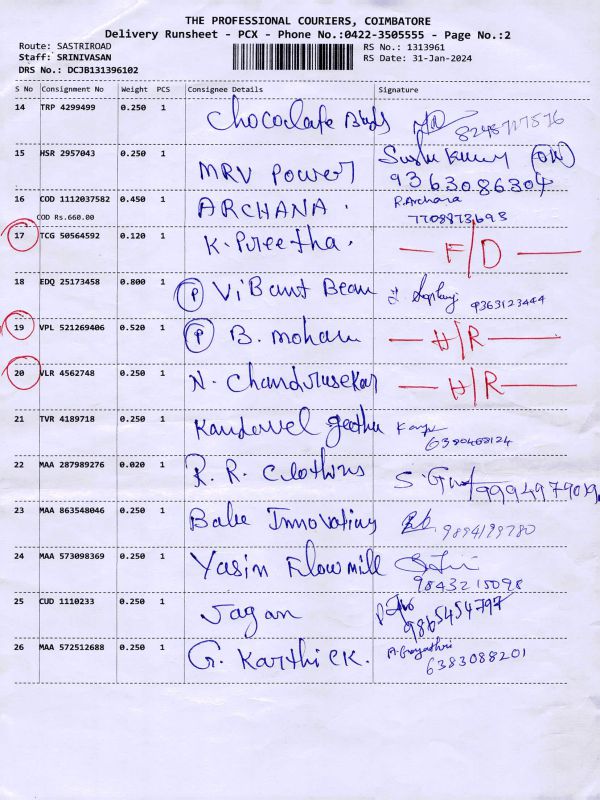 THE PROFESSIONAL COURIERS, COIMBATORE
Delivery Runsheet - PCX - Phone No.:0422-3505555 - Page No.:2
Route: SASTRIROAD RS No.: 1313961
Staff: SRINIVASAN RS Date: 31-Jan-2024
DRS No.: DCJB131396102
S No Consignment No Weight PCS Consignee Details Signature
14 TRP 4299499 0.250 1 Chocolate 8248717516
15 HSR 2957043 0.250 1 MRV Power (ON)
9363086304
16 COD 1112037582 0.450 1 ARCHANA. R.Archana
COD Rs.660.00 7708873693
17 TCG 50564592 0.120 1 K. Preetha. F/D
18 EDQ 25173458 0.800 1 (P) ViBant Bean 9363123444
19 VPL 521269406 0.520 1 (P) B. mohan H/R
20 VLR 4562748 0.250 1 N. Chandrasekar H/R
21 TVR 4189718 0.250 1 Kandavel geetha
6380468124
22 MAA 287989276 0.020 1 R. R. Clothins
23 MAA 863548046 0.250 1 Innovations 9894199780
24 MAA 573098369 0.250 1 Yasin Flowmill
9843215098
25 CUD 1110233 0.250 1 Jagan 9865454797
26 MAA 572512688 0.250 1 G. Karthick. A.Gayathri
6383088201